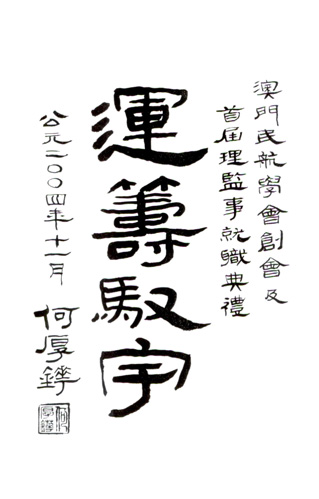 澳門民航學會創會及
首屆理監事就職典禮
運籌馭宇
公元二〇〇四年十一月
何厚鏵